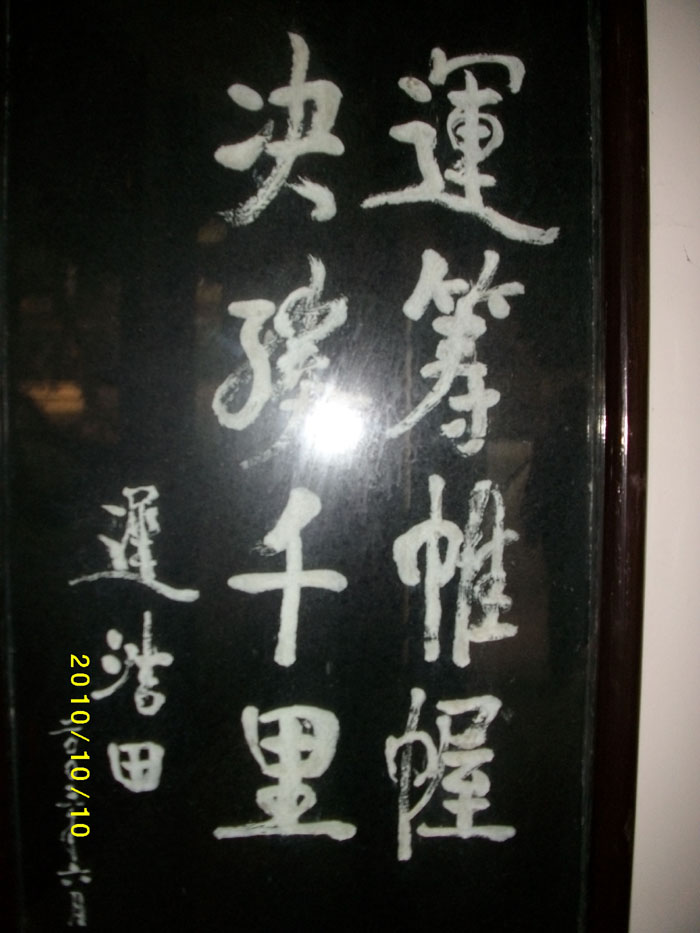 運筹帷幄
决勝千里
遲浩田
2010/10/10